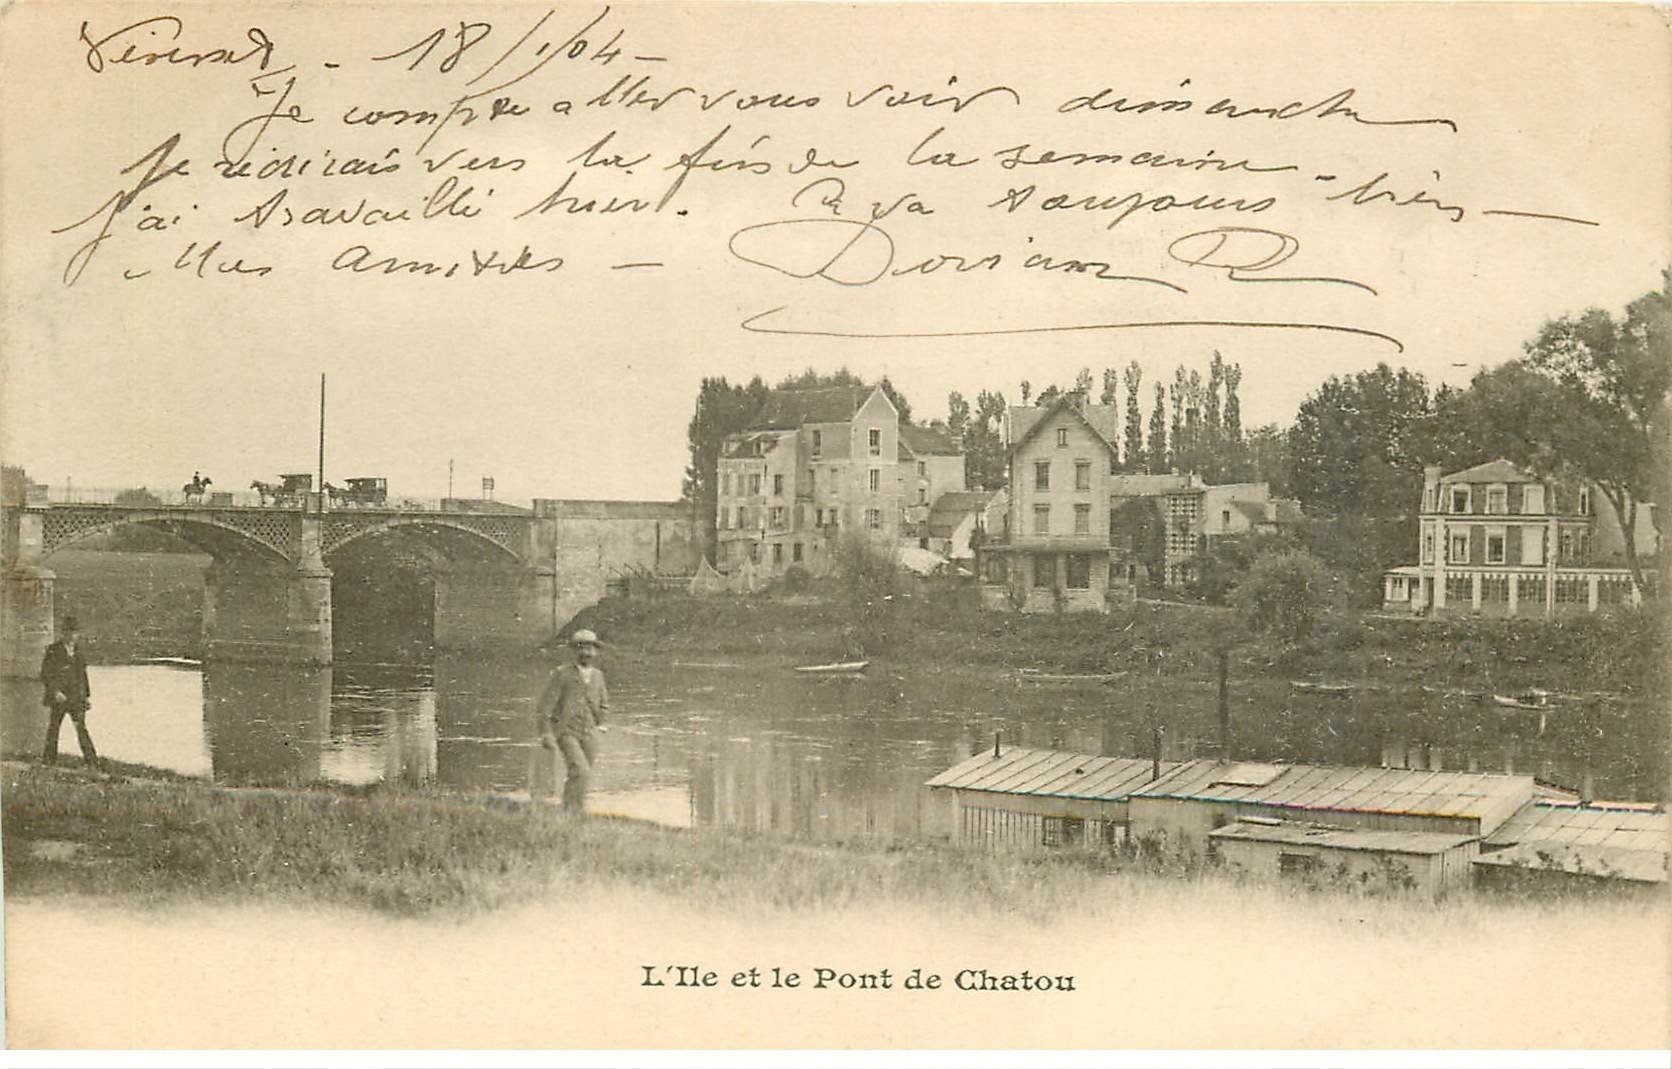 Vésinet - 18/1/04 -
Je compte aller vous voir dimanche
Je vers la fin de la semaine -
J'ai travaillé hier. va toujours bien -
Mes amitiés - Dorian
L'Ile et le Pont de Chatou